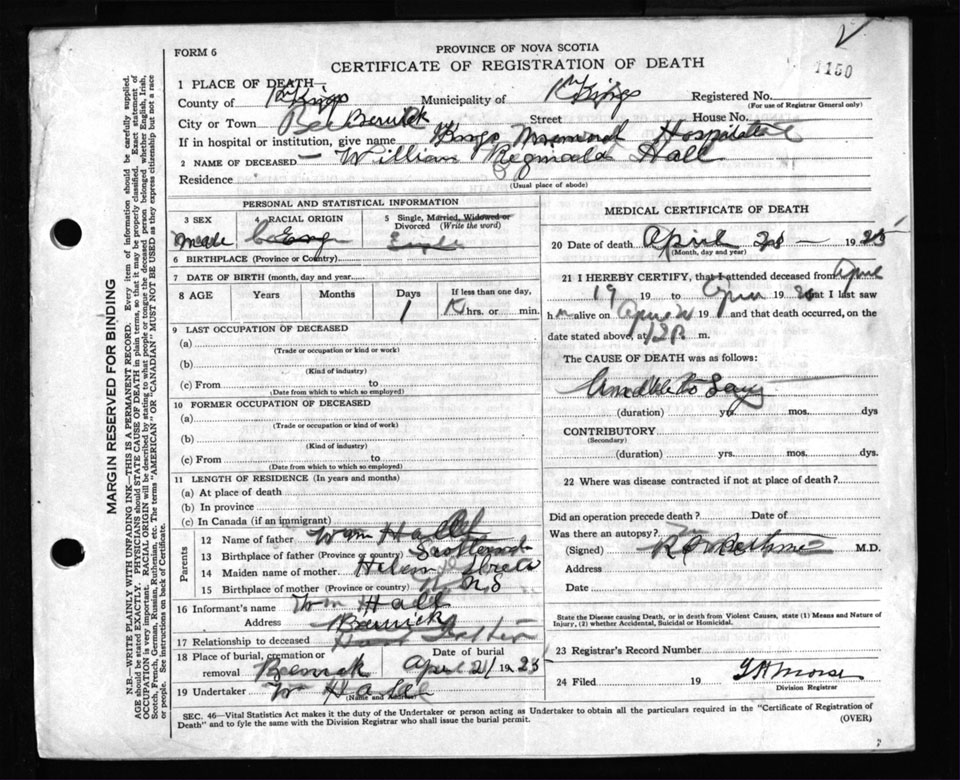 FORM 6
PROVINCE OF NOVA SCOTIA
CERTIFICATE OF REGISTRATION OF DEATH
1150
1 PLACE OF DEATH—
County of Kings Municipality of Kings Registered No.
(For use of Registrar General only)
City or Town Berwick Street House No.
If in hospital or institution, give name Kings Memorial Hospital
2 NAME OF DECEASED— William Reginald Hall
Residence
(Usual place of abode)
PERSONAL AND STATISTICAL INFORMATION
3 SEX 4 RACIAL ORIGIN 5 Single, Married, Widowed or Divorced (Write the word)
male Single
6 BIRTHPLACE (Province or Country)
7 DATE OF BIRTH (month, day and year)
8 AGE Years Months Days If less than one day,
1 hrs. or min.
9 LAST OCCUPATION OF DECEASED
(a)
(Trade or occupation or kind or work)
(b)
(Kind of industry)
(c) From to
(Date from which to which so employed)
10 FORMER OCCUPATION OF DECEASED
(a)
(Trade or occupation or kind of work)
(b)
(Kind of industry)
(c) From to
(Date from which to which so employed)
11 LENGTH OF RESIDENCE (In years and months)
(a) At place of death
(b) In province
(c) In Canada (if an immigrant)
Parents
12 Name of father Wm Hall
13 Birthplace of father (Province or country) Scotland
14 Maiden name of mother Helen
15 Birthplace of mother (Province or country) N S
16 Informant's name Wm Hall
Address Berwick
17 Relationship to deceased Father
18 Place of burial, cremation or removal Berwick Date of burial April 21 1925
19 Undertaker Wm
(Name and Address)
MEDICAL CERTIFICATE OF DEATH
20 Date of death April 1925
(Month, day and year)
21 I HEREBY CERTIFY, that I attended deceased from April
19 19 to April 19 that I last saw
h m alive on April 19 and that death occurred, on
date stated above, at 12 P. m.
The CAUSE OF DEATH was as follows:
(duration) yrs. mos. dys
CONTRIBUTORY
(Secondary)
(duration) yrs. mos. dys.
22 Where was disease contracted if not at place of death?
Did an operation precede death? Date of
Was there an autopsy?
(Signed) M.D.
Address
Date
State the Disease causing Death, or in death from Violent Causes, state (1) Means and Nature of Injury, (2) whether Accidental, Suicidal or Homicidal.
23 Registrar's Record Number
24 Filed 19 Morse
Division Registrar
SEC. 46—Vital Statistics Act makes it the duty of the Undertaker or person acting as Undertaker to obtain all the particulars required in the "Certificate of Registration of
Death" and to fyle the same with the Division Registrar who shall issue the burial permit.
(OVER)
MARGIN RESERVED FOR BINDING
N.B.—WRITE PLAINLY WITH UNFADING INK—THIS IS A PERMANENT RECORD. Every item of information should be carefully supplied.
AGE should be stated EXACTLY. PHYSICIANS should STATE CAUSE OF DEATH in plain terms, so that it may be properly classified. Exact statement of
OCCUPATION is very important. RACIAL ORIGIN will be described by stating to what people or tongue the deceased person belonged whether English, Irish,
Scotch, French, German, Russian, Ruthenian, etc. The terms "AMERICAN" OR "CANADIAN" MUST NOT BE USED as they express citizenship but not a race
or people. See instructions on back of Certificate.